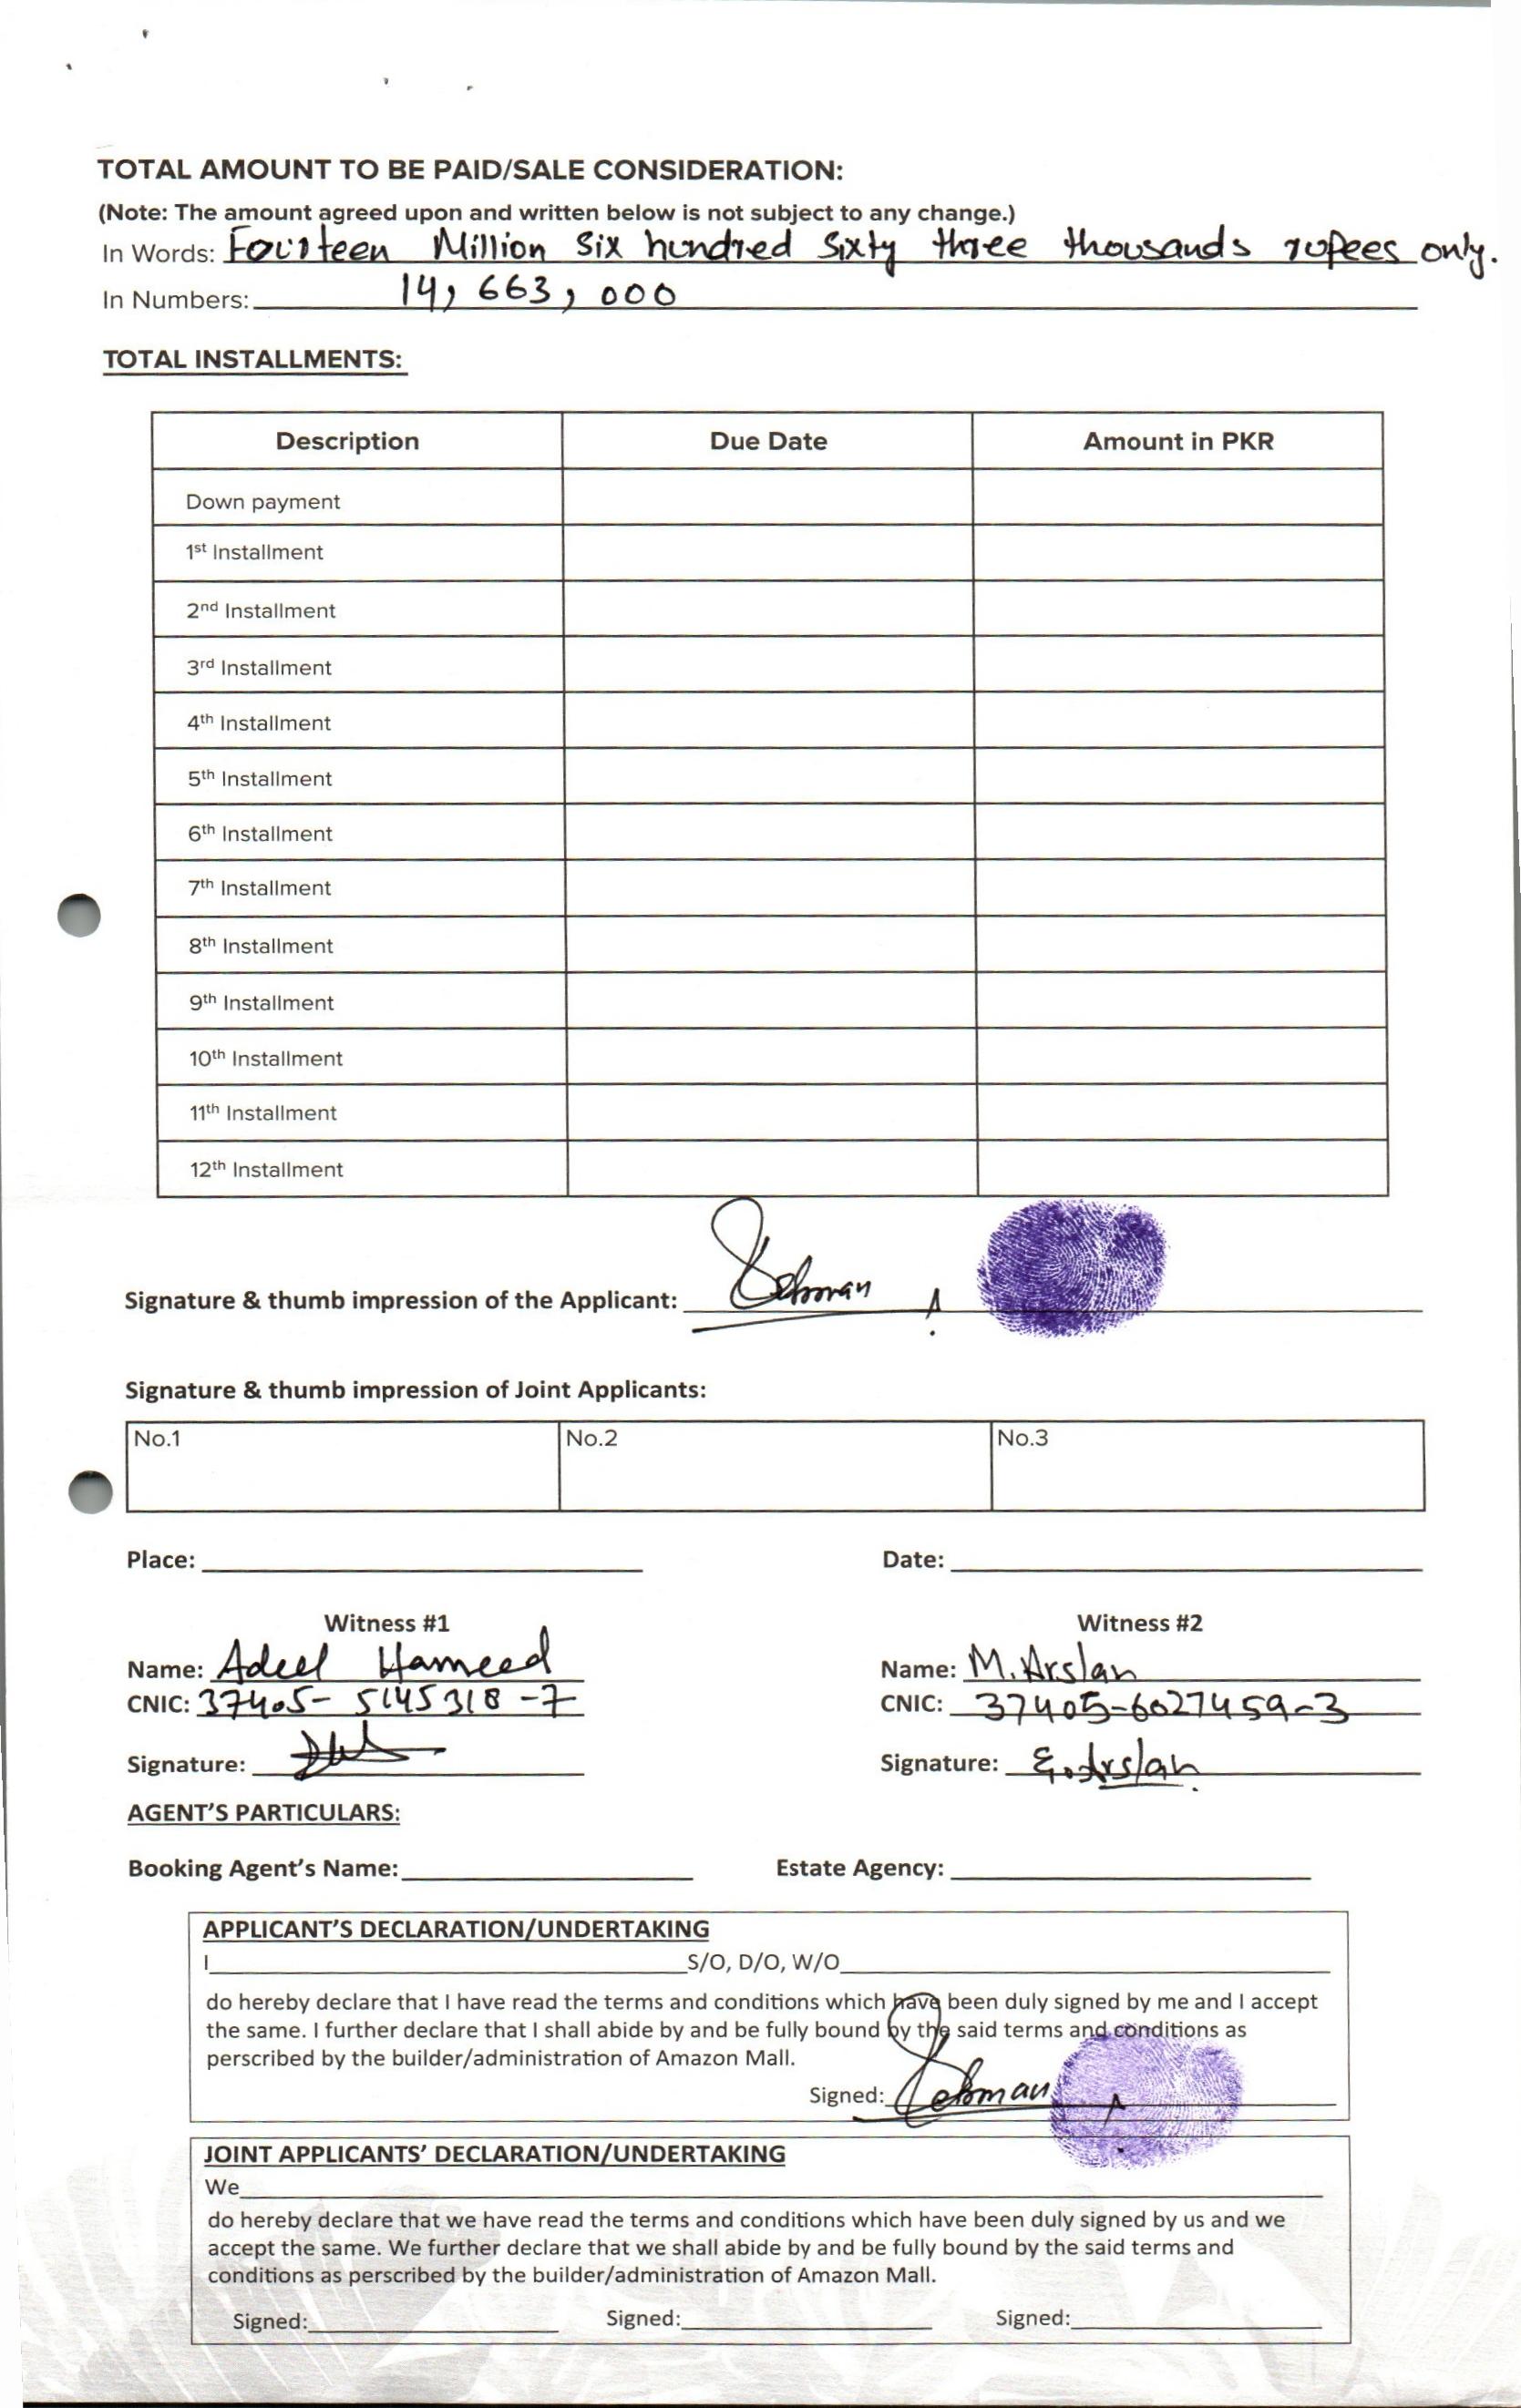 TOTAL AMOUNT TO BE PAID/SALE CONSIDERATION:
(Note: The amount agreed upon and written below is not subject to any change.)
In Words: Fourteen Million Six hundred Sixty three thousands rupees only.
In Numbers: 14, 663, 000
TOTAL INSTALLMENTS:
Description Due Date Amount in PKR
Down payment
1st Installment
2nd Installment
3rd Installment
4th Installment
5th Installment
6th Installment
7th Installment
8th Installment
9th Installment
10th Installment
11th Installment
12th Installment
Signature & thumb impression of the Applicant:
Signature & thumb impression of Joint Applicants:
No.1 No.2 No.3
Place: Date:
Witness #1 Witness #2
Name: Adeel Hameed Name: M. Arslan
CNIC: 37405- 5145318-7 CNIC: 37405-6027459-3
Signature: Signature: Arslan
AGENT'S PARTICULARS:
Booking Agent's Name: Estate Agency:
APPLICANT'S DECLARATION/UNDERTAKING
I S/O, D/O, W/O
do hereby declare that I have read the terms and conditions which have been duly signed by me and I accept
the same. I further declare that I shall abide by and be fully bound by the said terms and conditions as
perscribed by the builder/administration of Amazon Mall.
Signed:
JOINT APPLICANTS' DECLARATION/UNDERTAKING
We
do hereby declare that we have read the terms and conditions which have been duly signed by us and we
accept the same. We further declare that we shall abide by and be fully bound by the said terms and
conditions as perscribed by the builder/administration of Amazon Mall.
Signed: Signed: Signed: